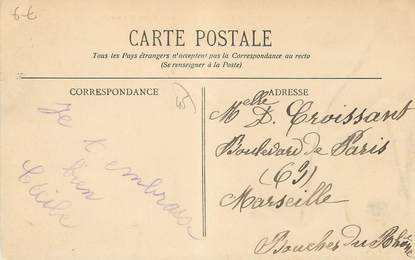 6-€
CARTE POSTALE
Tous les Pays étrangers n'acceptent pas la Correspondance au recto
(Se renseigner à la Poste)
CORRESPONDANCE
ADRESSE
Je t'embrasse
bien
Melle D. Croissant
Boulevard de Paris
(63)
Marseille
Bouches du Rhône